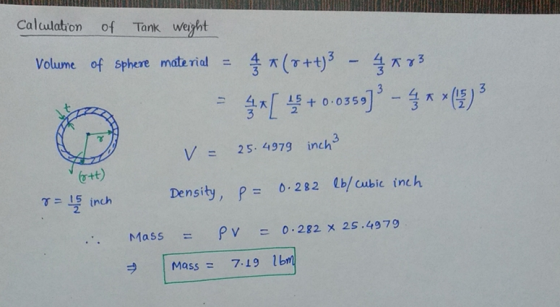 Calculation of Tank Weight
Volume of sphere material = 4/3 π (r+t)³ − 4/3 π r³
= 4/3 π [ 15/2 + 0.0359 ]³ − 4/3 π × (15/2)³
t
r
(r+t)
V = 25.4979 inch³
r = 15/2 inch
Density, ρ = 0.282 lb/cubic inch
∴ Mass = ρV = 0.282 × 25.4979
⇒ Mass = 7.19 lbm